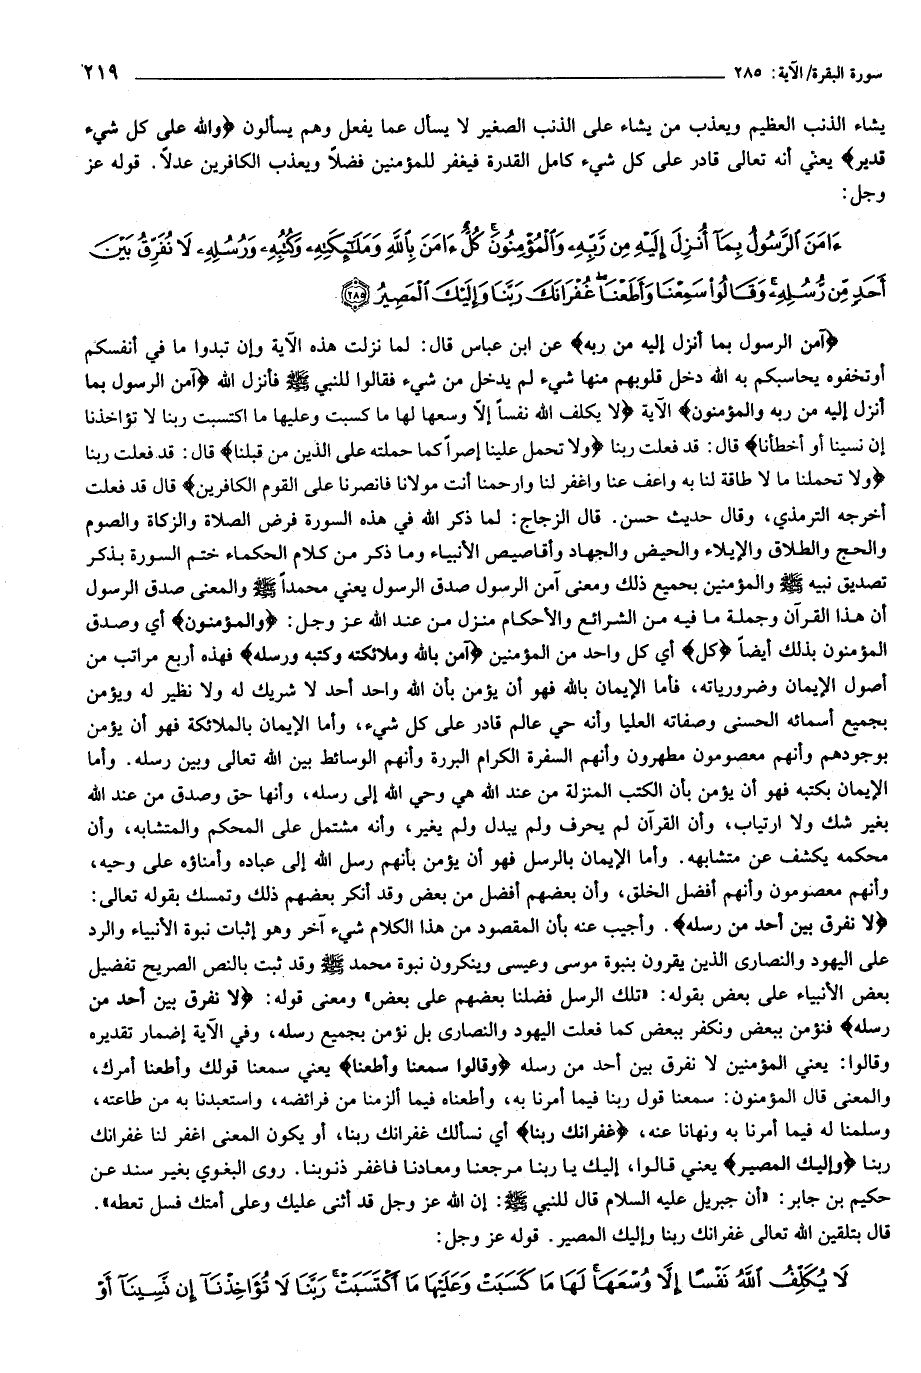 سورة البقرة/ الآية: ٢٨٥ ٢١٩
يشاء الذنب العظيم ويعذب من يشاء على الذنب الصغير لا يسأل عما يفعل وهم يسألون ﴿والله على كل شيء
قدير﴾ يعني أنه تعالى قادر على كل شيء كامل القدرة فيغفر للمؤمنين فضلاً ويعذب الكافرين عدلاً. قوله عز
وجل:
ءَامَنَ الرَّسُولُ بِمَآ أُنزِلَ إِلَيْهِ مِن رَّبِّهِۦ وَالْمُؤْمِنُونَۚ كُلٌّ ءَامَنَ بِاللَّهِ وَمَلَٰٓئِكَتِهِۦ وَكُتُبِهِۦ وَرُسُلِهِۦ لَا نُفَرِّقُ بَيْنَ
أَحَدٍ مِّن رُّسُلِهِۦۚ وَقَالُوا۟ سَمِعْنَا وَأَطَعْنَاۖ غُفْرَانَكَ رَبَّنَا وَإِلَيْكَ الْمَصِيرُ ﴿٢٨٥﴾
﴿آمن الرسول بما أنزل إليه من ربه﴾ عن ابن عباس قال: لما نزلت هذه الآية وإن تبدوا ما في أنفسكم
أوتخفوه يحاسبكم به الله دخل قلوبهم منها شيء لم يدخل من شيء فقالوا للنبي ﷺ فأنزل الله ﴿آمن الرسول بما
أنزل إليه من ربه والمؤمنون﴾ الآية ﴿لا يكلف الله نفساً إلاّ وسعها لها ما كسبت وعليها ما اكتسبت ربنا لا تؤاخذنا
إن نسينا أو أخطأنا﴾ قال: قد فعلت ربنا ﴿ولا تحمل علينا إصراً كما حملته على الذين من قبلنا﴾ قال: قد فعلت ربنا
﴿ولا تحملنا ما لا طاقة لنا به واعف عنا واغفر لنا وارحمنا أنت مولانا فانصرنا على القوم الكافرين﴾ قال قد فعلت
أخرجه الترمذي، وقال حديث حسن. قال الزجاج: لما ذكر الله في هذه السورة فرض الصلاة والزكاة والصوم
والحج والطلاق والإيلاء والحيض والجهاد وأقاصيص الأنبياء وما ذكر من كلام الحكماء ختم السورة بذكر
تصديق نبيه ﷺ والمؤمنين بجميع ذلك ومعنى آمن الرسول صدق الرسول يعني محمداً ﷺ والمعنى صدق الرسول
أن هذا القرآن وجملة ما فيه من الشرائع والأحكام منزل من عند الله عز وجل: ﴿والمؤمنون﴾ أي وصدق
المؤمنون بذلك أيضاً ﴿كل﴾ أي كل واحد من المؤمنين ﴿آمن بالله وملائكته وكتبه ورسله﴾ فهذه أربع مراتب من
أصول الإيمان وضرورياته، فأما الإيمان بالله فهو أن يؤمن بأن الله واحد أحد لا شريك له ولا نظير له ويؤمن
بجميع أسمائه الحسنى وصفاته العليا وأنه حي عالم قادر على كل شيء، وأما الإيمان بالملائكة فهو أن يؤمن
بوجودهم وأنهم معصومون مطهرون وأنهم السفرة الكرام البررة وأنهم الوسائط بين الله تعالى وبين رسله. وأما
الإيمان بكتبه فهو أن يؤمن بأن الكتب المنزلة من عند الله هي وحي الله إلى رسله، وأنها حق وصدق من عند الله
بغير شك ولا ارتياب، وأن القرآن لم يحرف ولم يبدل ولم يغير، وأنه مشتمل على المحكم والمتشابه، وأن
محكمه يكشف عن متشابهه. وأما الإيمان بالرسل فهو أن يؤمن بأنهم رسل الله إلى عباده وأمناؤه على وحيه،
وأنهم معصومون وأنهم أفضل الخلق، وأن بعضهم أفضل من بعض وقد أنكر بعضهم ذلك وتمسك بقوله تعالى:
﴿لا نفرق بين أحد من رسله﴾. وأجيب عنه بأن المقصود من هذا الكلام شيء آخر وهو إثبات نبوة الأنبياء والرد
على اليهود والنصارى الذين يقرون بنبوة موسى وعيسى وينكرون نبوة محمد ﷺ وقد ثبت بالنص الصريح تفضيل
بعض الأنبياء على بعض بقوله: «تلك الرسل فضلنا بعضهم على بعض» ومعنى قوله: ﴿لا نفرق بين أحد من
رسله﴾ فنؤمن ببعض ونكفر ببعض كما فعلت اليهود والنصارى بل نؤمن بجميع رسله، وفي الآية إضمار تقديره
وقالوا: يعني المؤمنين لا نفرق بين أحد من رسله ﴿وقالوا سمعنا وأطعنا﴾ يعني سمعنا قولك وأطعنا أمرك،
والمعنى قال المؤمنون: سمعنا قول ربنا فيما أمرنا به، وأطعناه فيما ألزمنا من فرائضه، واستعبدنا به من طاعته،
وسلمنا له فيما أمرنا به ونهانا عنه، ﴿غفرانك ربنا﴾ أي نسألك غفرانك ربنا، أو يكون المعنى اغفر لنا غفرانك
ربنا ﴿وإليك المصير﴾ يعني قالوا، إليك يا ربنا مرجعنا ومعادنا فاغفر ذنوبنا. روى البغوي بغير سند عن
حكيم بن جابر: «أن جبريل عليه السلام قال للنبي ﷺ: إن الله عز وجل قد أثنى عليك وعلى أمتك فسل تعطه».
قال بتلقين الله تعالى غفرانك ربنا وإليك المصير. قوله عز وجل:
لَا يُكَلِّفُ اللَّهُ نَفْسًا إِلَّا وُسْعَهَاۚ لَهَا مَا كَسَبَتْ وَعَلَيْهَا مَا اكْتَسَبَتْۗ رَبَّنَا لَا تُؤَاخِذْنَآ إِن نَّسِينَآ أَوْ